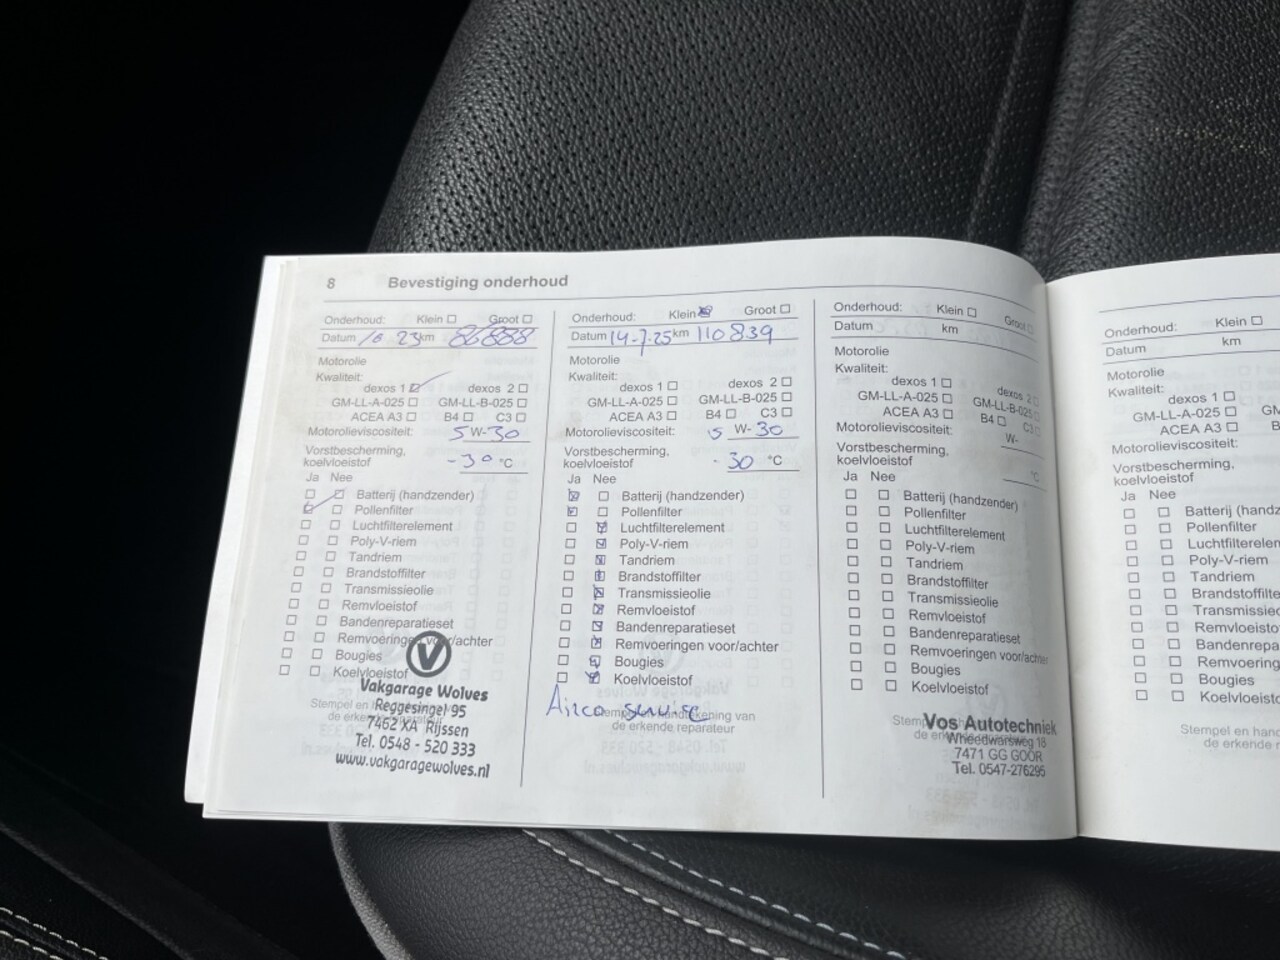 8 Bevestiging onderhoud
Onderhoud: Klein Groot
Datum 23 km 86888
Motorolie
Kwaliteit:
dexos 1 dexos 2
GM-LL-A-025 GM-LL-B-025
ACEA A3 B4 C3
Motorolieviscositeit: 5 W-30
Vorstbescherming,
koelvloeistof -30 °C
Ja Nee
Batterij (handzender)
Pollenfilter
Luchtfilterelement
Poly-V-riem
Tandriem
Brandstoffilter
Transmissieolie
Remvloeistof
Bandenreparatieset
Remvoeringen voor/achter
Bougies
Koelvloeistof
Stempel en
de erkende reparateur
V
Vakgarage Wolves
Reggesingel 95
7462 XA Rijssen
Tel. 0548 - 520 333
www.vakgaragewolves.nl
Onderhoud: Klein Groot
Datum 14-7-25 km 110839
Motorolie
Kwaliteit:
dexos 1 dexos 2
GM-LL-A-025 GM-LL-B-025
ACEA A3 B4 C3
Motorolieviscositeit: 5 W-30
Vorstbescherming,
koelvloeistof -30 °C
Ja Nee
Batterij (handzender)
Pollenfilter
Luchtfilterelement
Poly-V-riem
Tandriem
Brandstoffilter
Transmissieolie
Remvloeistof
Bandenreparatieset
Remvoeringen voor/achter
Bougies
Koelvloeistof
Airco
Stempel en handtekening van
de erkende reparateur
Onderhoud: Klein Groot
Datum km
Motorolie
Kwaliteit:
dexos 1 dexos 2
GM-LL-A-025 GM-LL-B-025
ACEA A3 B4 C3
Motorolieviscositeit: W-
Vorstbescherming,
koelvloeistof °C
Ja Nee
Batterij (handzender)
Pollenfilter
Luchtfilterelement
Poly-V-riem
Tandriem
Brandstoffilter
Transmissieolie
Remvloeistof
Bandenreparatieset
Remvoeringen voor/achter
Bougies
Koelvloeistof
Vos Autotechniek
7471 GG GOOR
Tel. 0547-276295
Onderhoud: Klein
Datum km
Motorolie
Kwaliteit:
dexos 1
GM-LL-A-025
ACEA A3
Motorolieviscositeit:
Vorstbescherming,
koelvloeistof
Ja Nee
Batterij (handz
Pollenfilter
Luchtfilterelem
Poly-V-riem
Tandriem
Brandstoffilter
Transmissieo
Remvloeisto
Bandenrepara
Remvoering
Bougies
Koelvloeisto
Stempel en hand
de erkende r